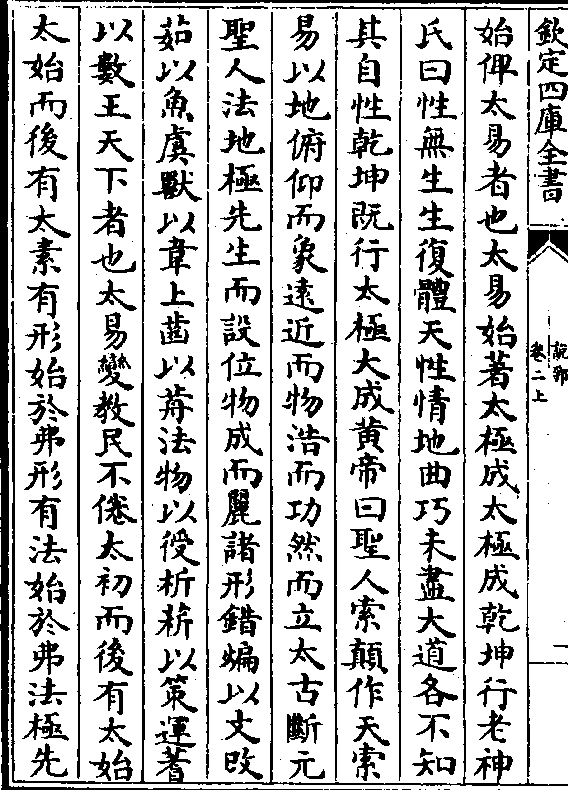 欽定四庫全書
說郛
卷二上
一
始俾太易者也太易始著太極成太極成乾坤行老神
氏曰性無生生復體天性情地曲巧未盡大道各不知
其自性乾坤既行太極大成黄帝曰聖人索顛作天索
易以地俯仰而象遠近而物浩而功然而立太古斷元
聖人法地極先生而設位物成而麗諸形錯煸以文畋
茹以魚虞獸以韋上菌以葬法物以役析薪以策運蓍
以數王天下者也太易變教民不倦太初而後有太始
太始而後有太素有形始於弗形有法始於弗法極先